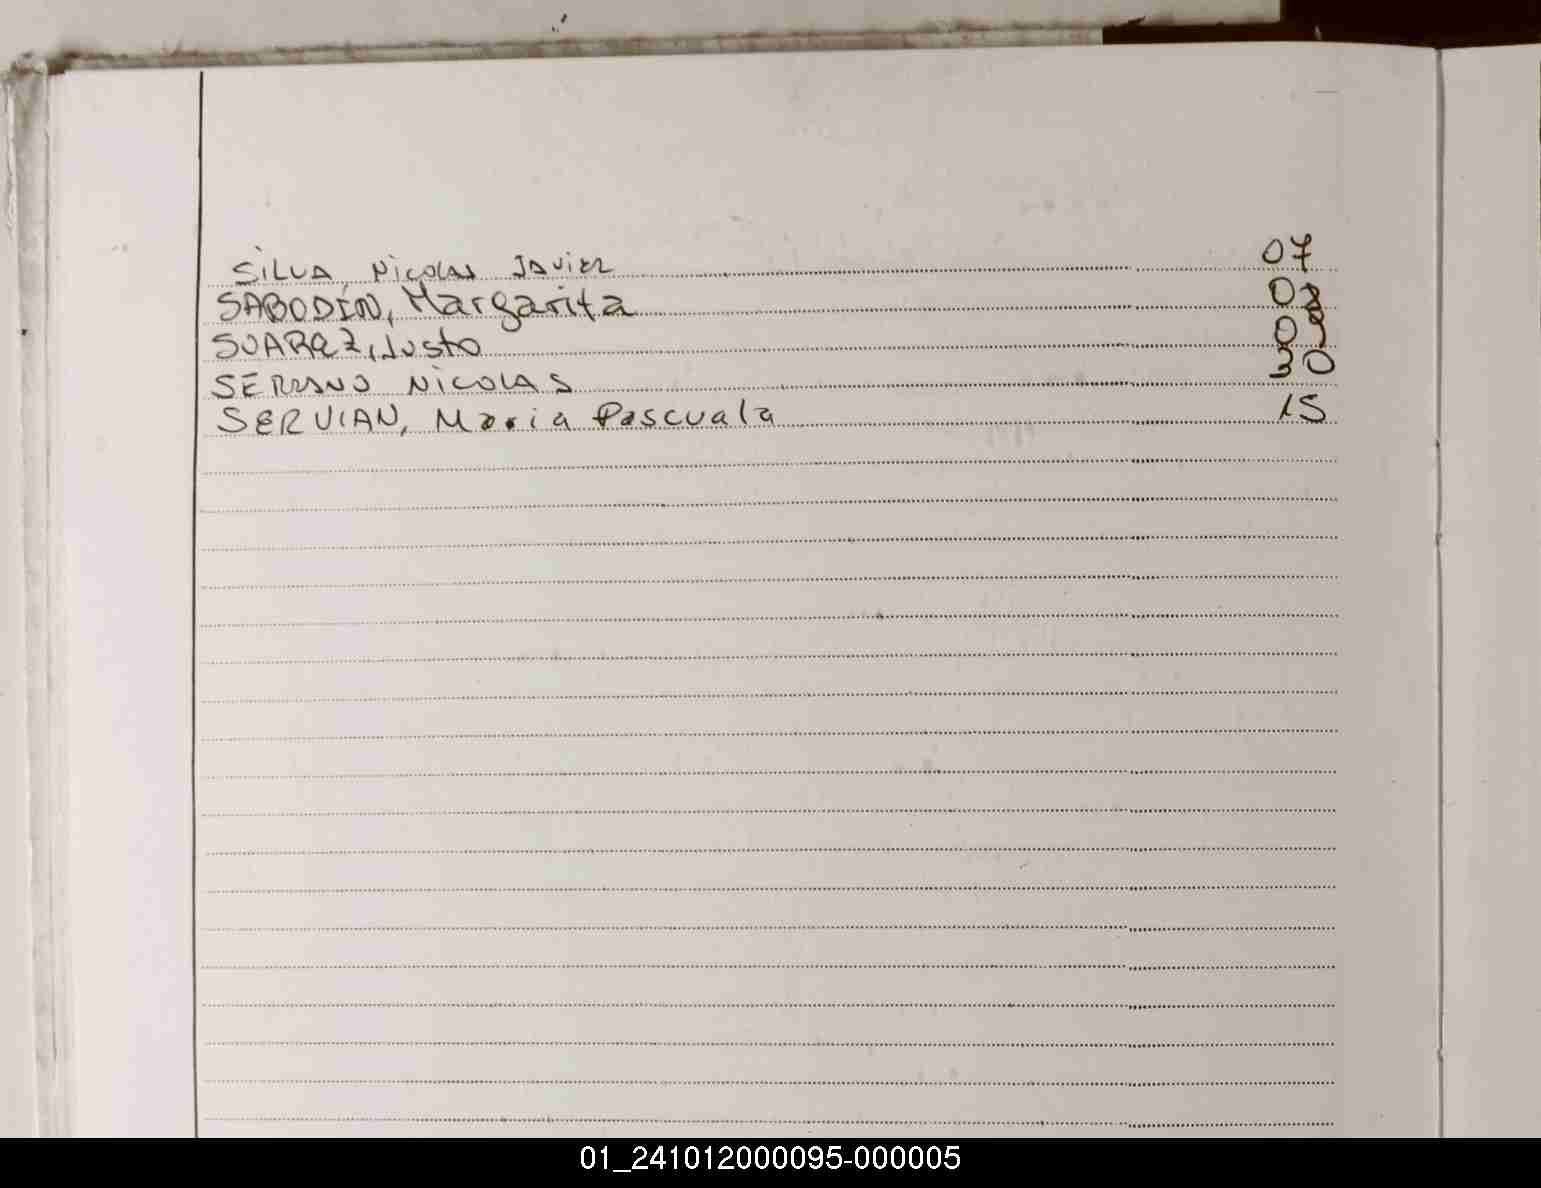 SILVA, Nicolas Javier 07
SABODÍN, Margarita 08
SUAREZ, Justo 09
SERRANO NICOLAS 30
SERVIAN, Maria Pascuala 15
01_241012000095-000005